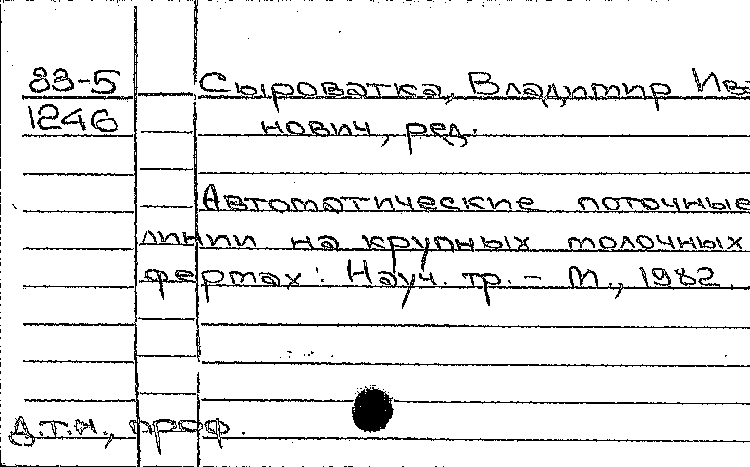 83-5 Сыроватка, Владимир Ива
1246 нович, ред.
Автоматические поточные
линии на крупных молочных
фермах: Науч. тр. - М., 1982.
д.т.н., проф.